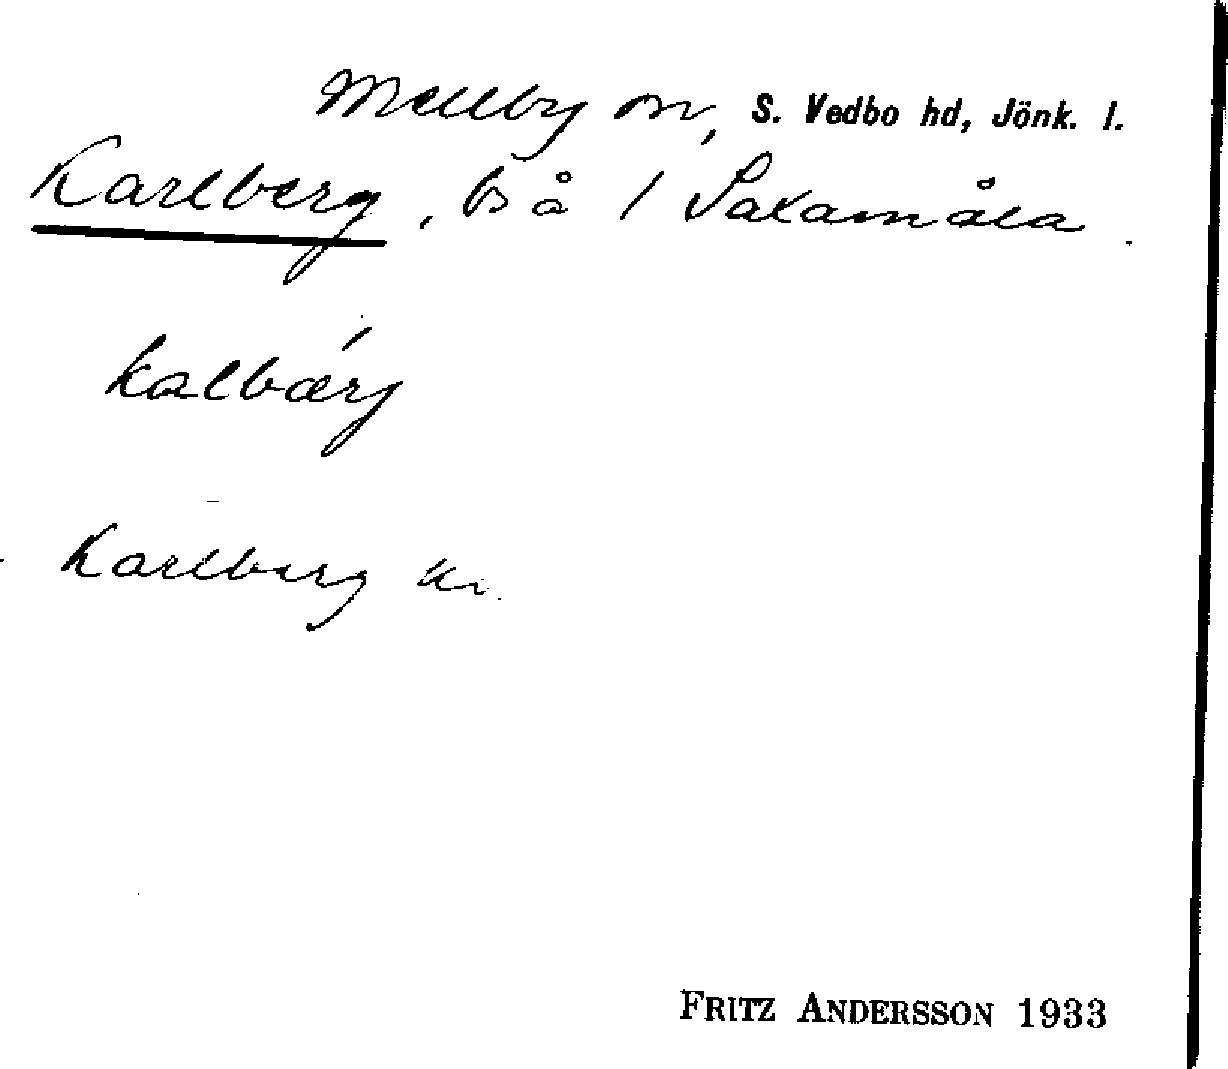 Mellby sn, S. Vedbo hd, Jönk. l.
Karlberg, bs å 1 Sakamåla.
kalbærj
Karlberg kr.
FRITZ ANDERSSON 1933